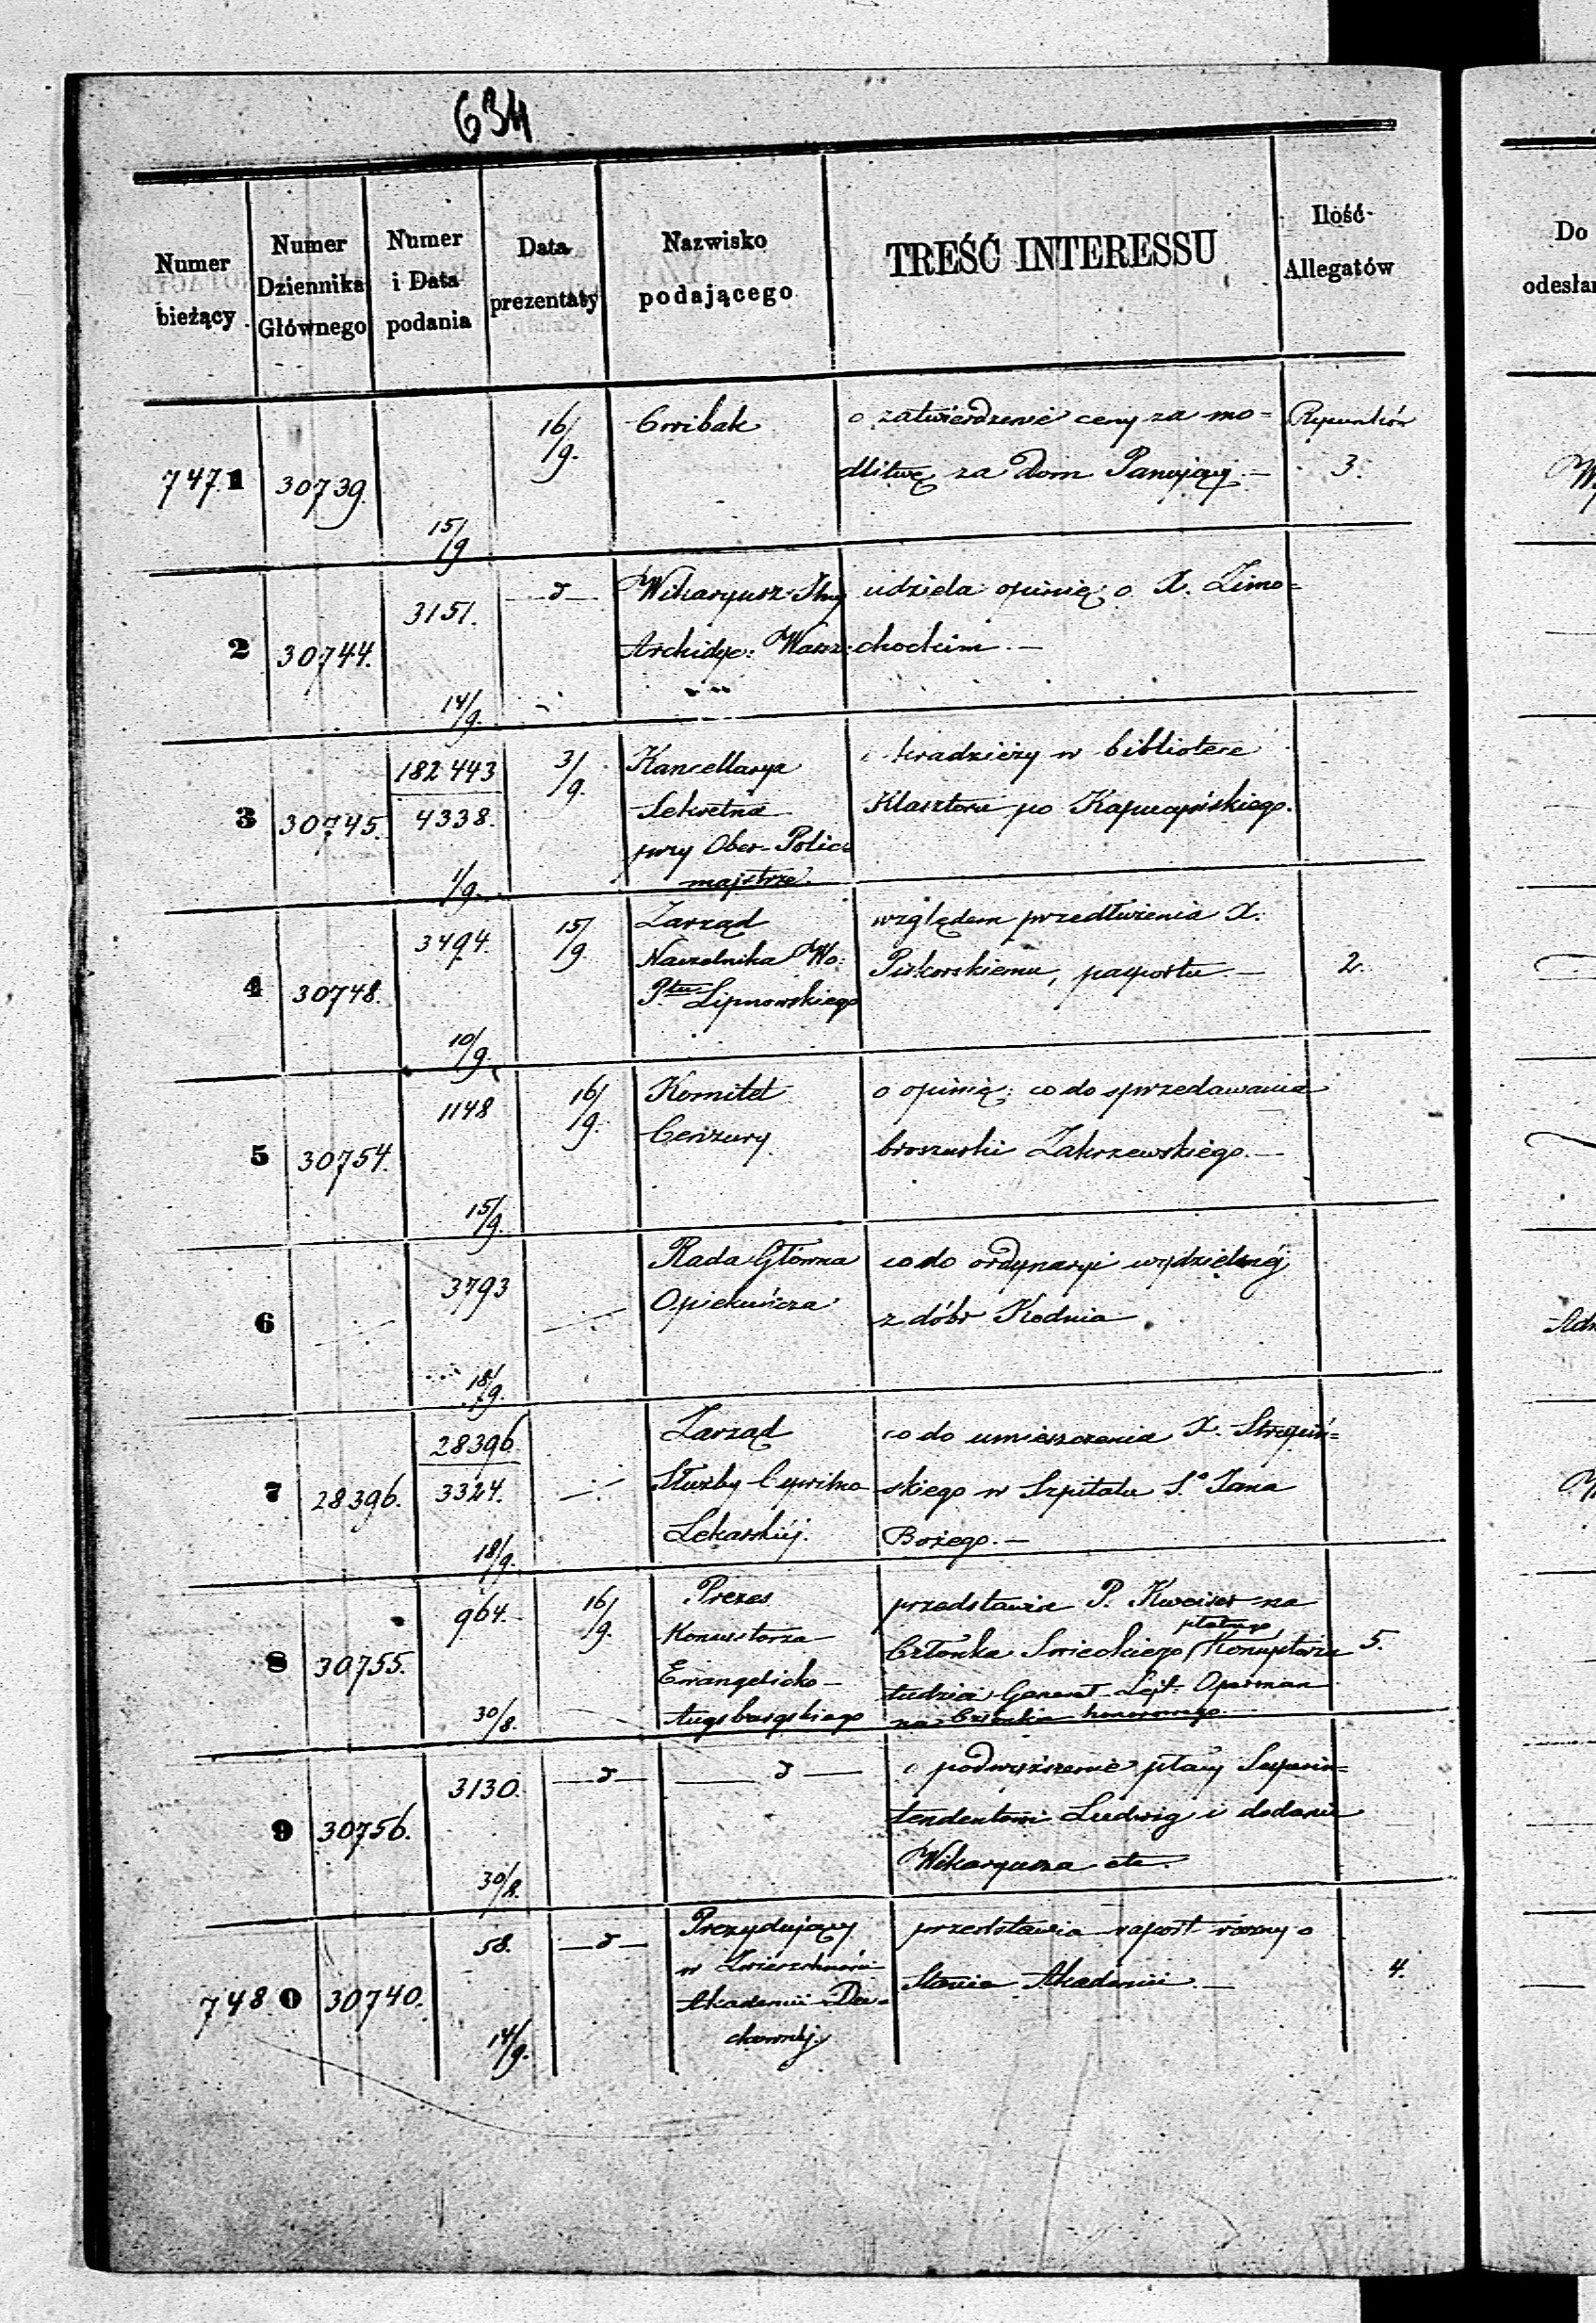 634
Numer bieżący
Numer Dziennika Głównego
Numer i Data podania
Data prezentaty
Nazwisko podającego
TREŚĆ INTERESSU
Ilość Allegatów
Do
odesła
747.1 30739. 15/9 16/9. Cwibak
o zatwierdzenie ceny za mo=
dlitwę za Dom Panujący. —
Rysunków
3.
2 30744. 3151. 14/9. — d —
Wikaryusz
Archidyc: Warsz:
udziela opinię o X. Zimo=
chockim. —
3 30745. 182443
4338. 1/9. 3/9.
Kancellarya
Sekretna
przy Ober-Polic=
majstrze.
o kradzieży w bibliotece
Klasztoru po Kapucyńskiego.
4 30748. 3494. 10/9. 15/9
Zarząd
Naczelnika Wo:
P.tu Lipnowskiego
względem przedłużenia X.
Piskorskiemu, pasportu —
2.
5 30754. 1148 15/9. 16/9.
Komitet
Cenzury.
o opinię co do sprzedawania
broszurki Zakrzewskiego. —
6 3793 18/9.
Rada Główna
Opiekuńcza
co do ordynaryi wydzielnéj
z dóbr Kodnia
7 28396. 28396
3324. 18/9.
Zarząd
Służby Cywilno
Lekarskiéj.
co do umieszczenia X.
skiego w Szpitalu S.o Jana
Bożego. —
8 30755. 964. 30/8. 16/9.
Prezes
Konsystorza
Ewangelicko —
Augsburgskiego
przedstawia P. Kweiser na
płatnego
Członka Swieckiego Konsystorza
tudzież Generał-Lejt: Operman
na Członka honorowego.
5.
9 30756. 3130. 30/8. — d — — d —
o podwyższenie płacy Superin=
tendentowi Ludwig i dodanie
Wikaryusza etc.
748.0 30740. 58. 14/9. — d —
Prezydujący
w Zwierzchności
Akademii Du=
chownéj.
przedstawia raport roczny o
Stanie Akademii. —
4.